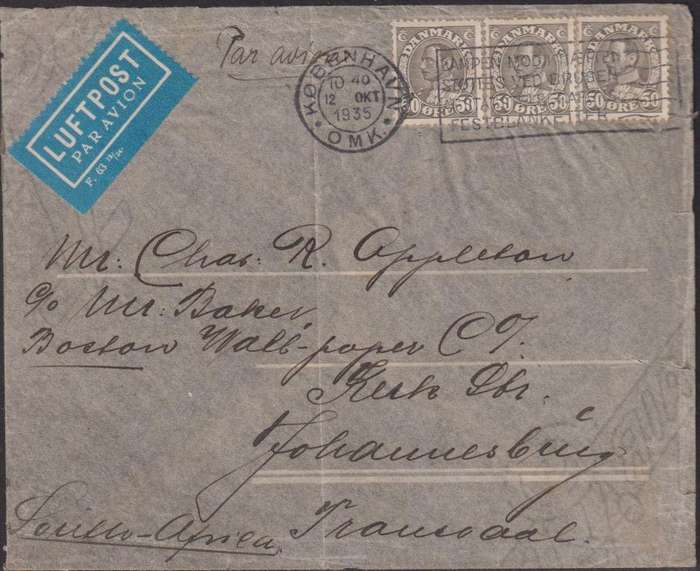 LUFTPOST
PAR AVION
F. 63
Par avion
KØBENHAVN
OMK.
10 40
12 OKT
1935
DANMARK
50 ØRE 50
DANMARK
50 ØRE 50
DANMARK
50 ØRE 50
KAMPEN MOD
STØTTES VED BRUGEN
Mr. Chas. R. Appleton
c/o Mr. Baker,
Boston Wall-paper Co.
Kerk Str.
Johannesburg
South-Africa, Transvaal.